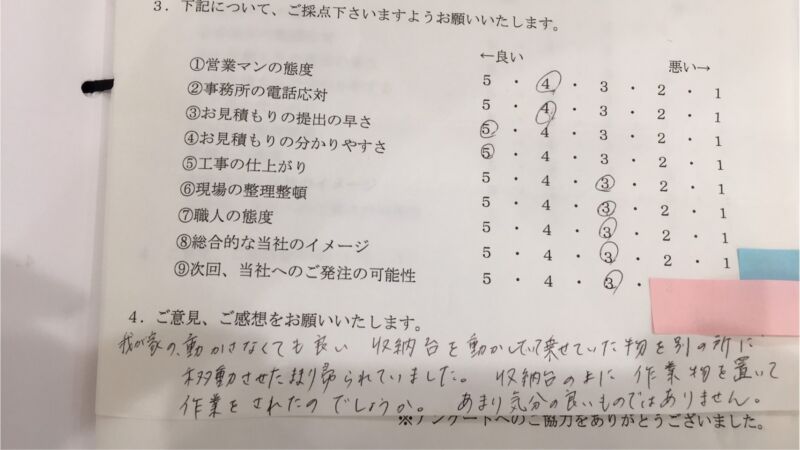 ３．下記について、ご採点下さいますようお願いいたします。
←良い 悪い→
①営業マンの態度 5 ・ 4 ・ 3 ・ 2 ・ 1
②事務所の電話応対 5 ・ 4 ・ 3 ・ 2 ・ 1
③お見積もりの提出の早さ 5 ・ 4 ・ 3 ・ 2 ・ 1
④お見積もりの分かりやすさ 5 ・ 4 ・ 3 ・ 2 ・ 1
⑤工事の仕上がり 5 ・ 4 ・ 3 ・ 2 ・ 1
⑥現場の整理整頓 5 ・ 4 ・ 3 ・ 2 ・ 1
⑦職人の態度 5 ・ 4 ・ 3 ・ 2 ・ 1
⑧総合的な当社のイメージ 5 ・ 4 ・ 3 ・ 2 ・ 1
⑨次回、当社へのご発注の可能性 5 ・ 4 ・ 3 ・
４．ご意見、ご感想をお願いいたします。
我が家の、動かさなくても良い 収納台を動かし 乗せていた物を別の所に
移動させたまり帰られていました。 収納台の上に 作業物を置いて
作業をされたのでしょうか。 あまり気分の良いものではありません。
※アンケートへのご協力をありがとうございました。